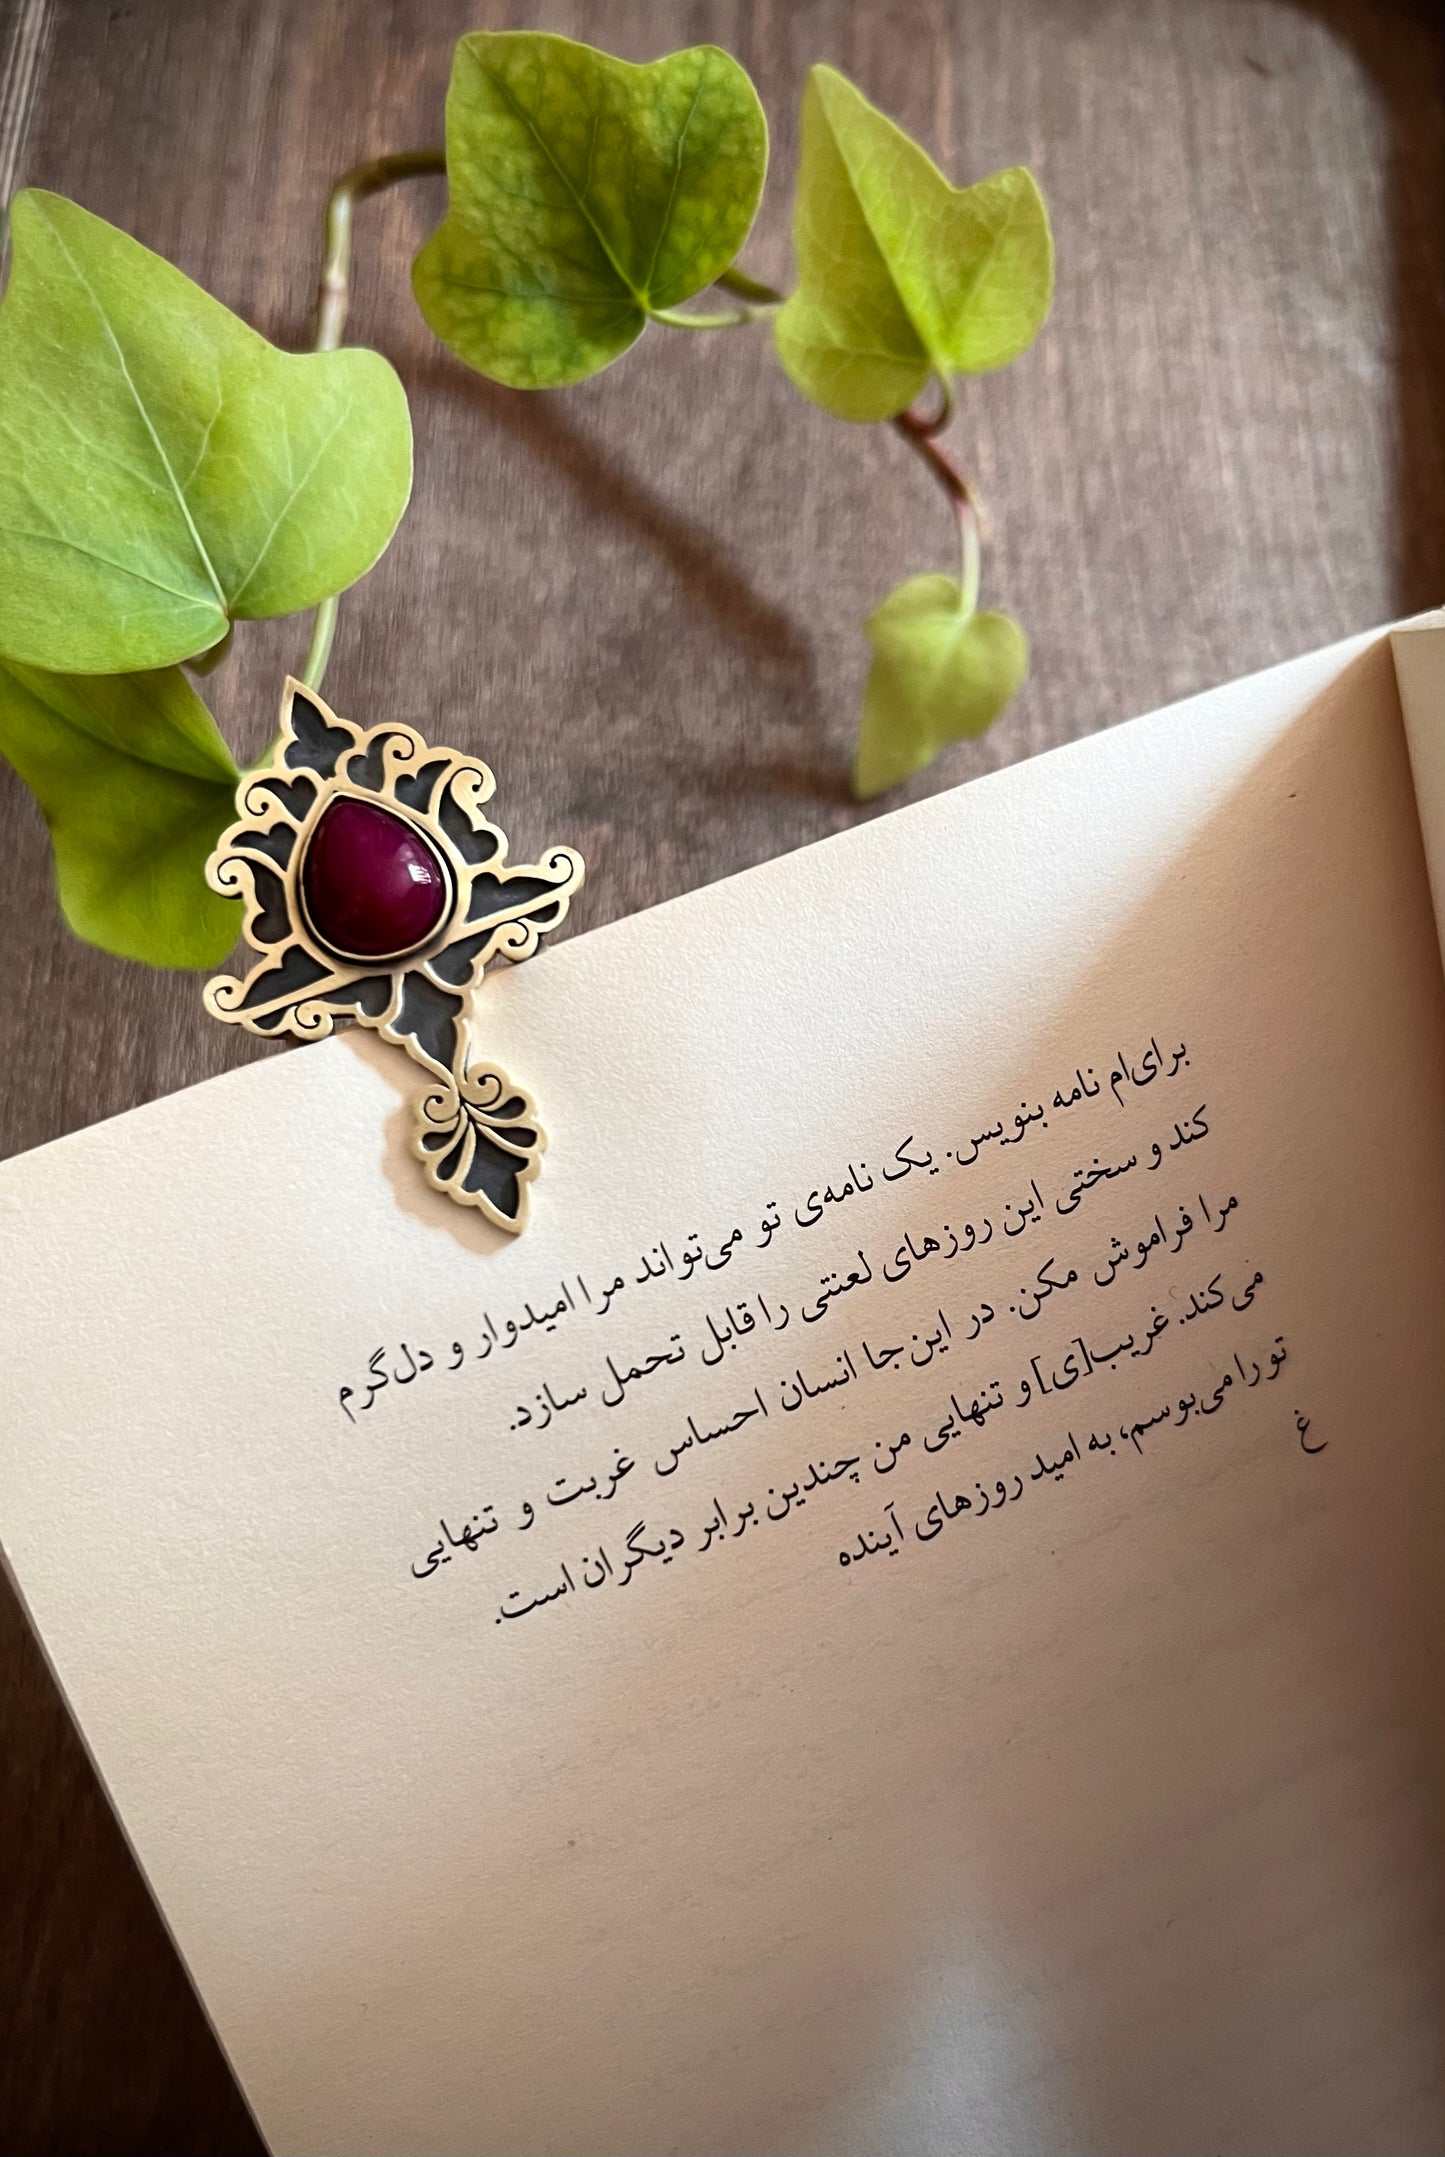 برای‌ام نامه بنویس. یک نامه‌ی تو می‌تواند مرا امیدوار و دل‌گرم
کند و سختی این روزهای لعنتی را قابل تحمل سازد.
مرا فراموش مکن. در این‌جا انسان احساس غربت و تنهایی
می‌کند. غریب[ی] و تنهایی من چندین برابر دیگران است.
تو را می‌بوسم، به امید روزهای آینده
غ